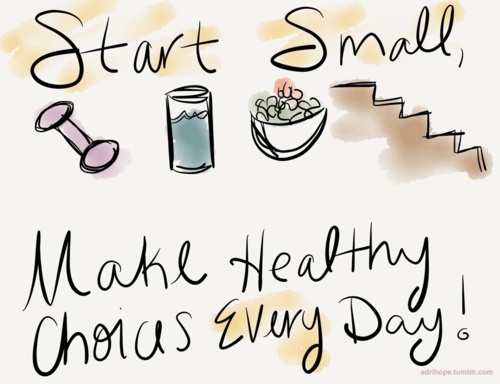 Start Small,
Make Healthy
Choices Every Day!
adrihope.tumblr.com